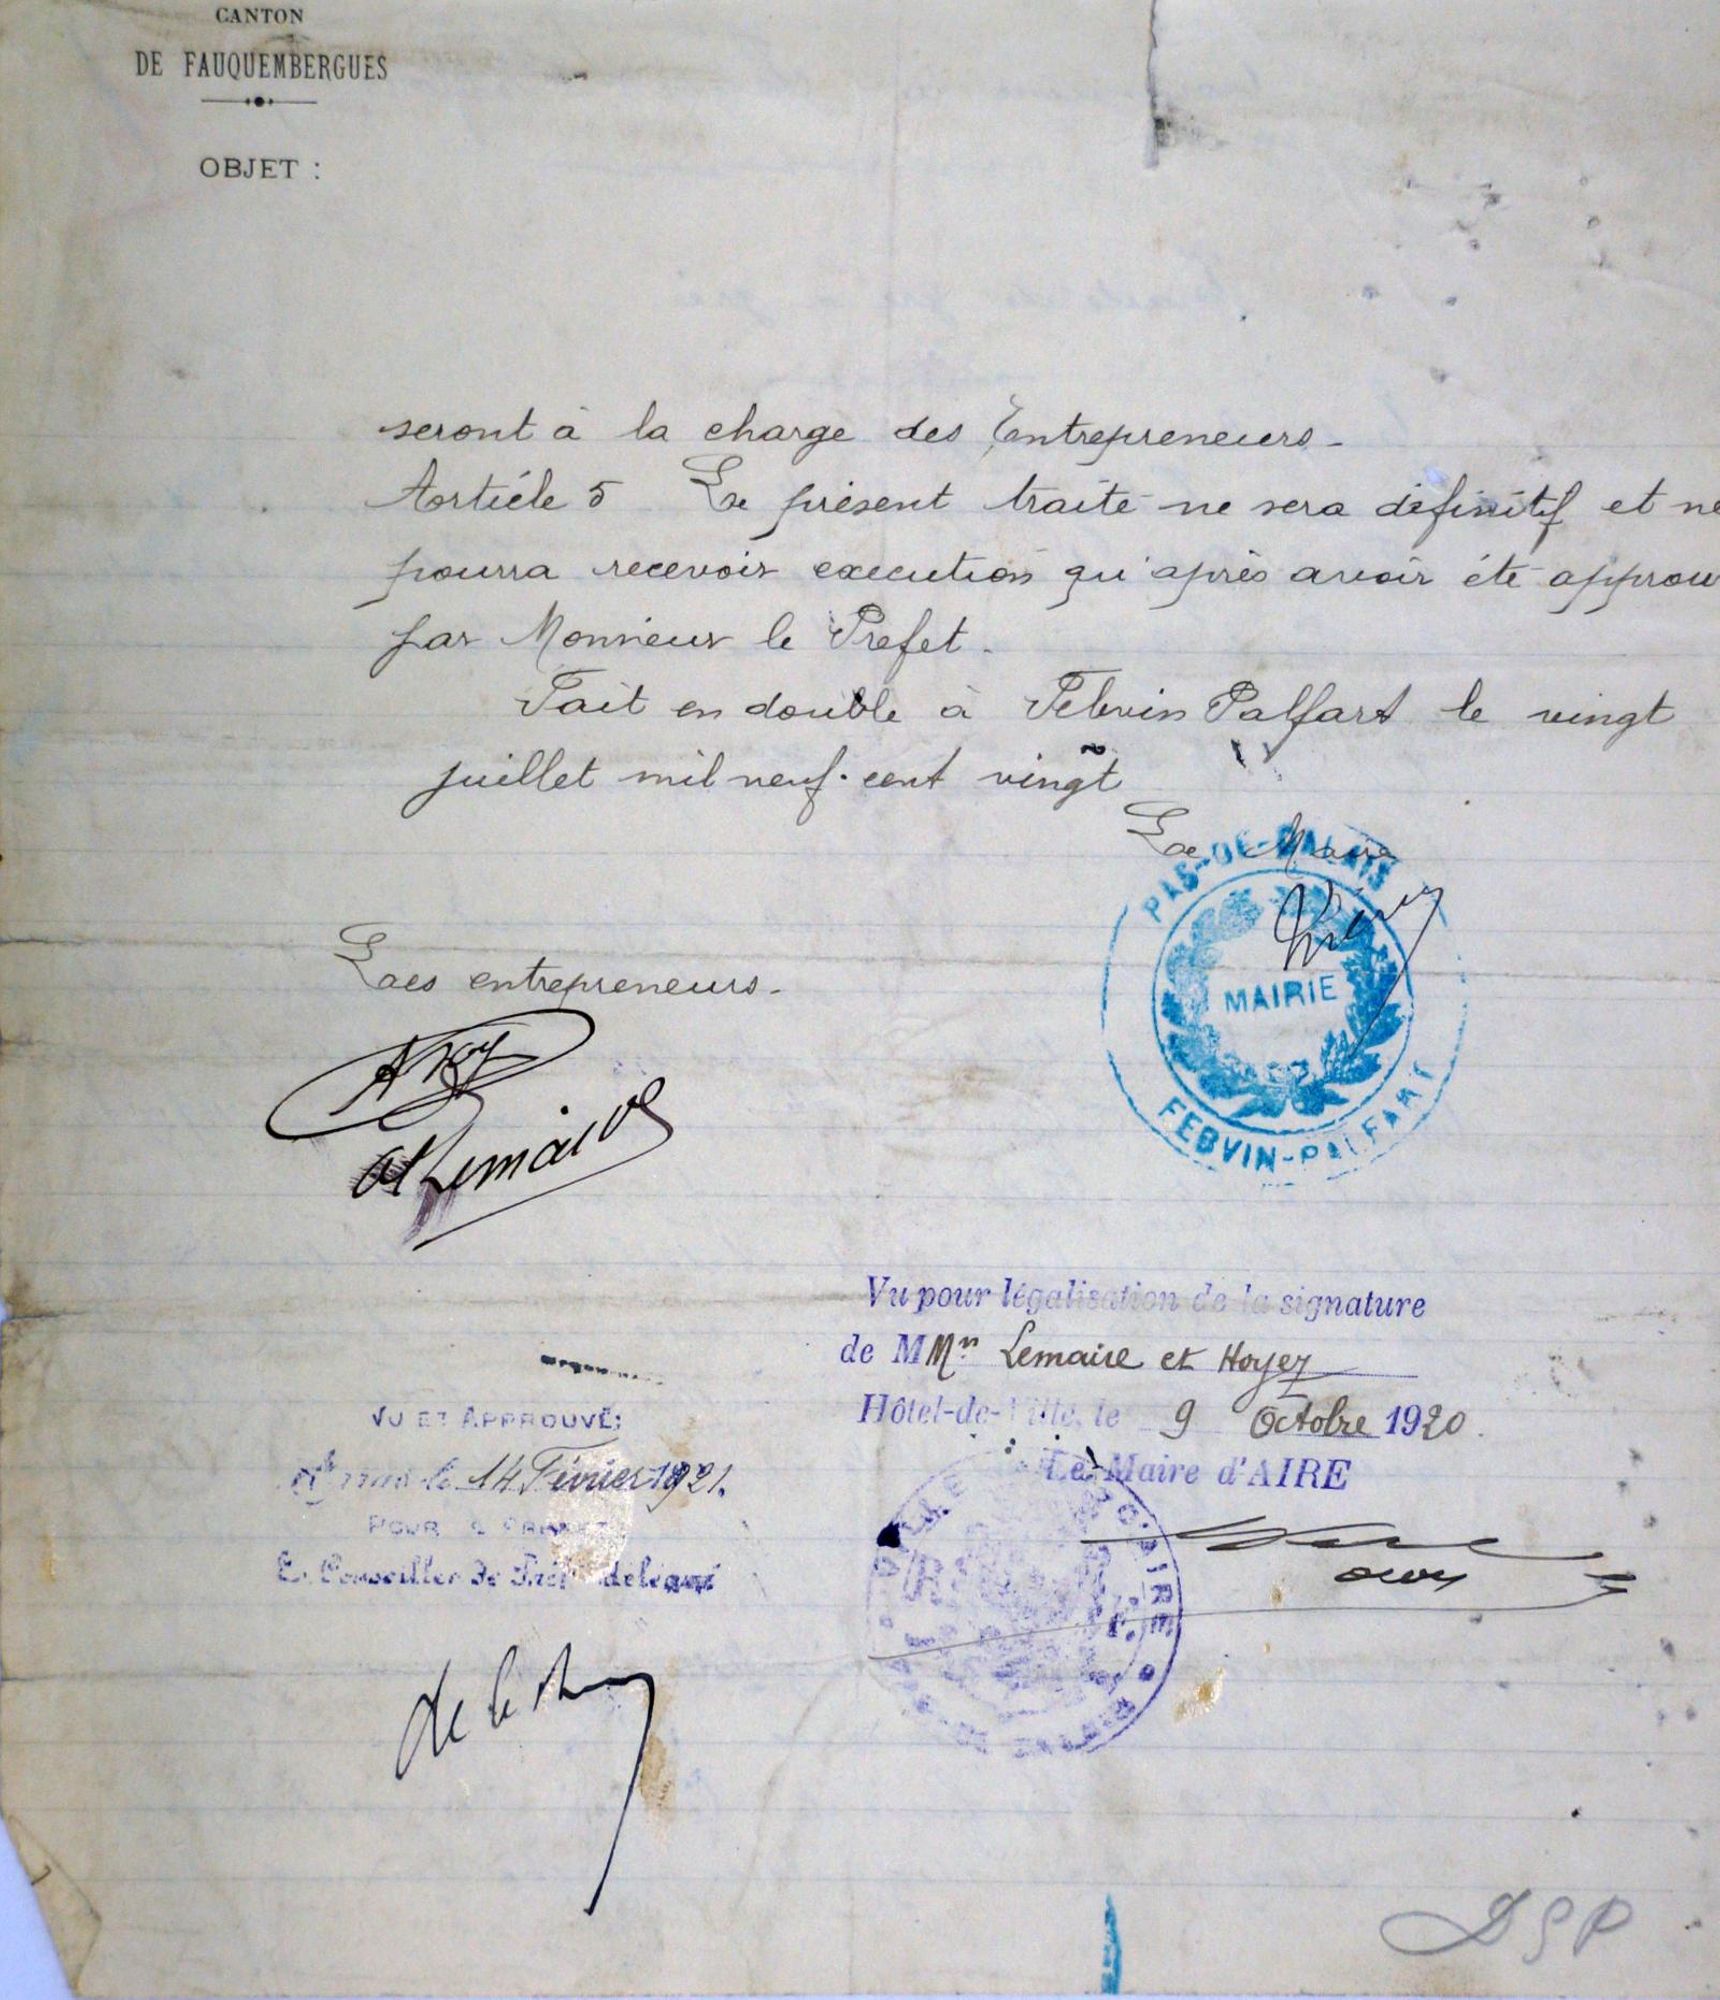 CANTON
DE FAUQUEMBERGUES
OBJET :
seront à la charge des Entrepreneurs.
Article 5 Le présent traité ne sera définitif et ne
pourra recevoir execution qu'après avoir été approu
par Monsieur le Prefet.
Fait en double à Febvin Palfart le vingt
juillet mil neuf cent vingt
Le Maire
PAS-DE-CALAIS
MAIRIE
FEBVIN-PALFART
Les entrepreneurs.
Lemaire
Vu pour légalisation de la signature
de MMrs Lemaire et Hoyez
Hôtel-de-Ville, le 9 Octobre 1920.
Le Maire d'AIRE
VU ET APPROUVÉ:
Arras le 14 Février 1921.
POUR LE PREFET
Le Conseiller de Préf délégué
VILLE D'AIRE
DGP